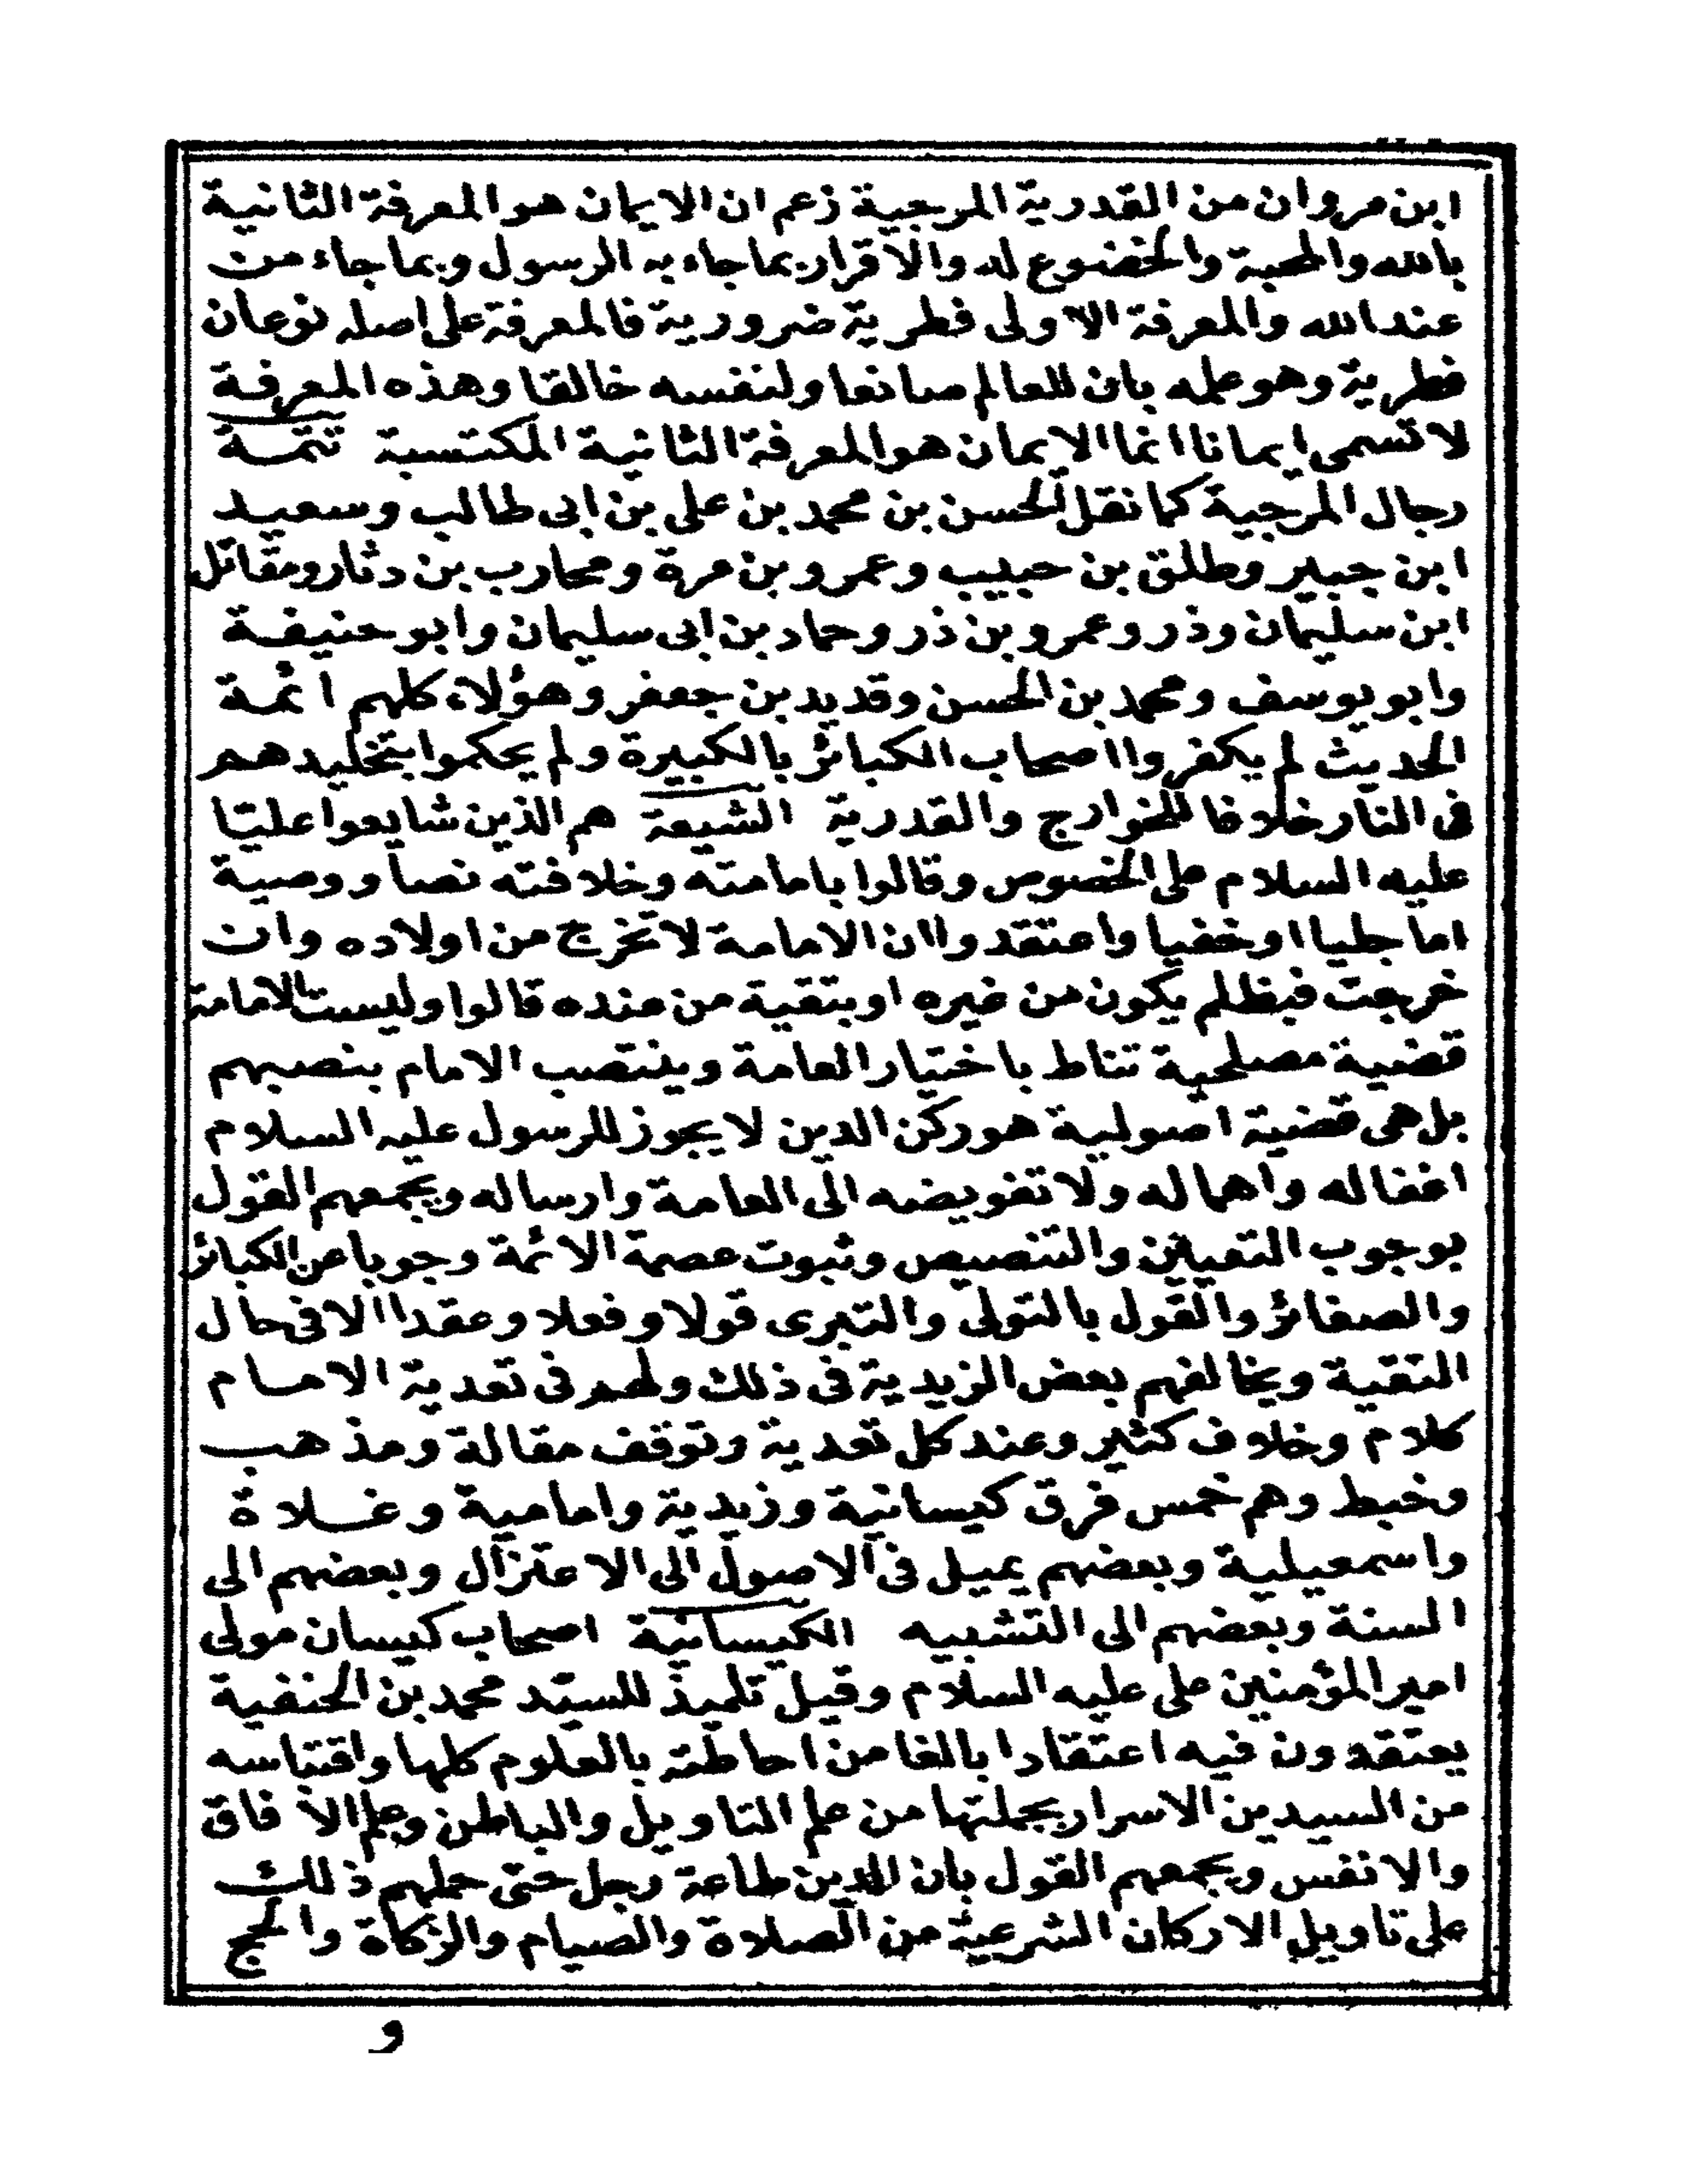 ابن مروان من القدرية المرجية زعم ان الايمان هو المعرفة الثانية
بالله والمحبة والخضوع له والاقرار بما جاء به الرسول وبما جاء من
عند الله والمعرفة الاولى فطرية ضرورية فالمعرفة على اصله نوعان
فطرية وهو علمه بان للعالم صانعا ولنفسه خالقا وهذه المعرفة
لا تسمى ايمانا انما الايمان هو المعرفة الثانية المكتسبة تتمة
رجال المرجية كما نقل الحسن بن محمد بن على بن ابى طالب وسعيد
ابن جبير وطلق بن حبيب وعمرو بن مرة ومحارب بن دثار ومقاتل
ابن سليمان وذر وعمرو بن ذر وحماد بن ابى سليمان وابو حنيفة
وابو يوسف ومحمد بن الحسن وقديد بن جعفر وهؤلاء كلهم ائمة
الحديث لم يكفروا اصحاب الكبائر بالكبيرة ولم يحكموا بتخليدهم
فى النار خلافا للخوارج والقدرية الشيعة هم الذين شايعوا عليّا
عليه السلام على الخصوص وقالوا بامامته وخلافته نصا ووصية
اما جليا او خفيا واعتقدوا ان الامامة لا تخرج من اولاده وان
خرجت فبظلم يكون من غيره او بتقية من عنده قالوا وليست الامامة
قضية مصلحية تناط باختيار العامة وينتصب الامام بنصبهم
بل هى قضية اصولية هو ركن الدين لا يجوز للرسول عليه السلام
اغفاله واهماله ولا تفويضه الى العامة وارساله ويجمعهم القول
بوجوب التعيين والتنصيص وثبوت عصمة الائمة وجوبا عن الكبائر
والصغائر والقول بالتولى والتبرى قولا وفعلا وعقدا الا فى حال
التقية ويخالفهم بعض الزيدية فى ذلك ولهم فى تعدية الامام
كلام وخلاف كثير وعند كل تعدية وتوقف مقالة ومذهب
وخبط وهم خمس فرق كيسانية وزيدية وامامية وغلاة
واسمعيلية وبعضهم يميل فى الاصول الى الاعتزال وبعضهم الى
السنة وبعضهم الى التشبيه الكيسانية اصحاب كيسان مولى
امير المؤمنين على عليه السلام وقيل تلميذ للسيّد محمد بن الحنفية
يعتقدون فيه اعتقادا بالغا من احاطته بالعلوم كلها واقتباسه
من السيدين الاسرار بجملتها من علم التاويل والباطن وعلم الآفاق
والانفس ويجمعهم القول بان الدين طاعة رجل حتى حملهم ذلك
على تاويل الاركان الشرعية من الصلاة والصيام والزكاة والحج
و